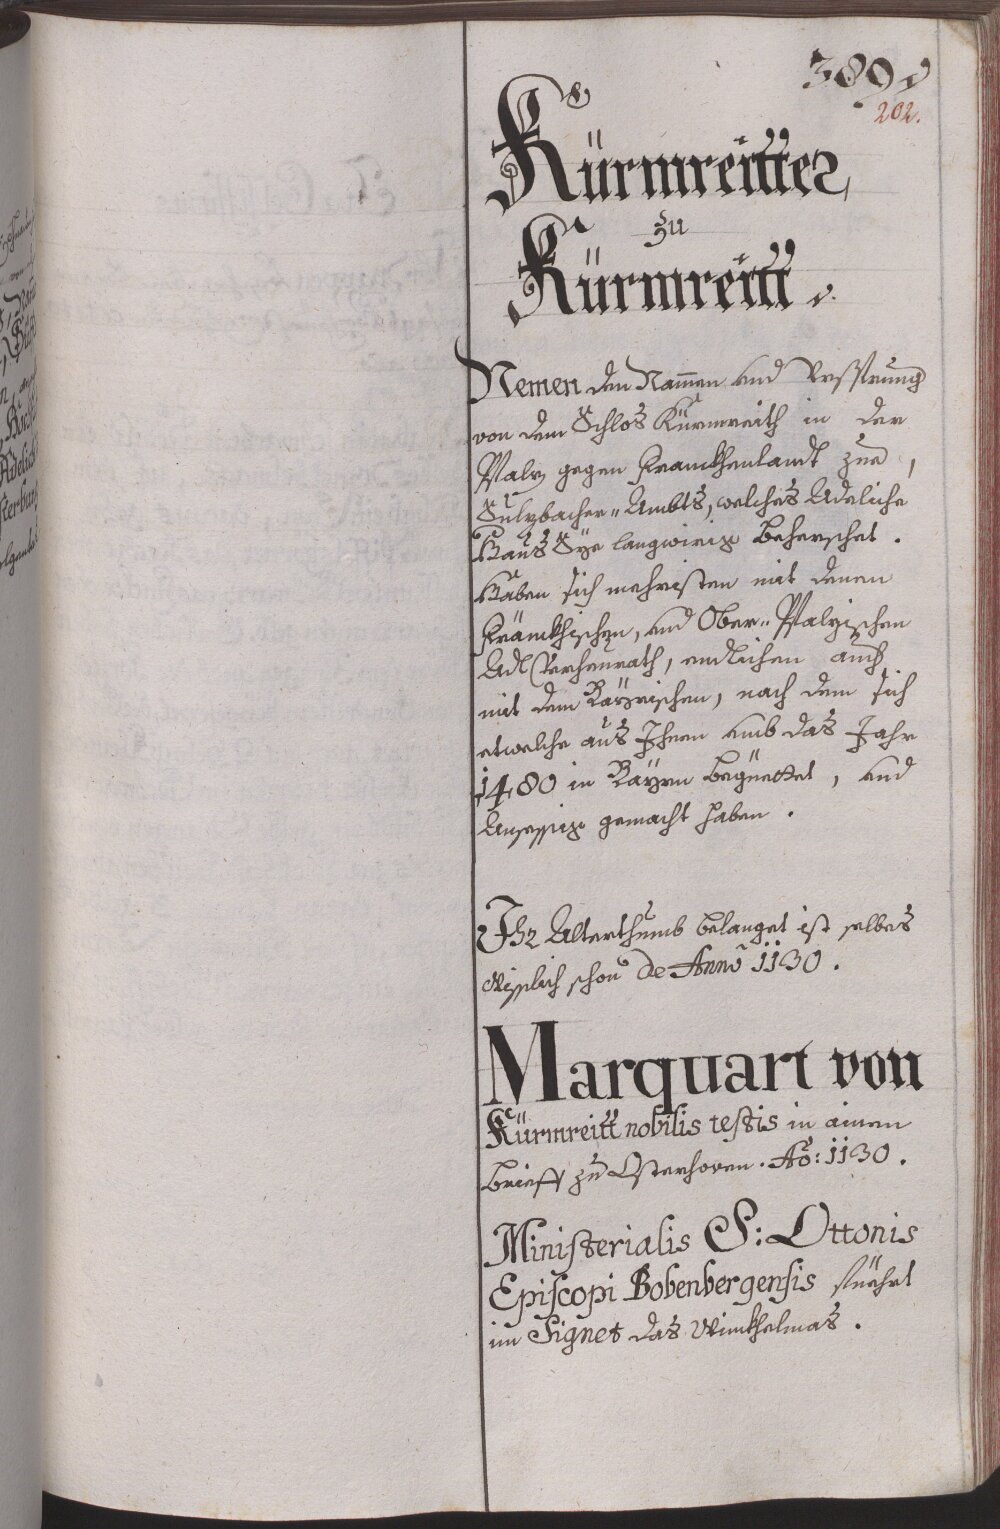 389
202.
Kürmreitter,
zu
Kürmreitt
Nemen den Namen und Ursprung
von dem Schlos Kürmreith in der
Pfalz gegen Franckhenlandt zue,
Sulzbacher Ambts, welches Adeliche
Haus Sye langwirig beherschet.
Haben sich mehristen mit denen
Fränckhischen, und Ober-Pfalzischen
Adl verheurath, endlichen auch
mit dem Bayrischen, nach dem sich
etwelche aus Ihnen umb das Jahr
1480 in Bayrn begüettet, und
Ansessig gemacht haben.
Ihr Alterthumb belanget ist selbes
wisslich schon de Anno 1130.
Marquart von
Kürmreitt nobilis testis in einem
brieff zu Osterhoven. Ao: 1130.
Ministerialis S: Ottonis
Episcopi Bobenbergensis führt
im Signet das Winckhelmas.